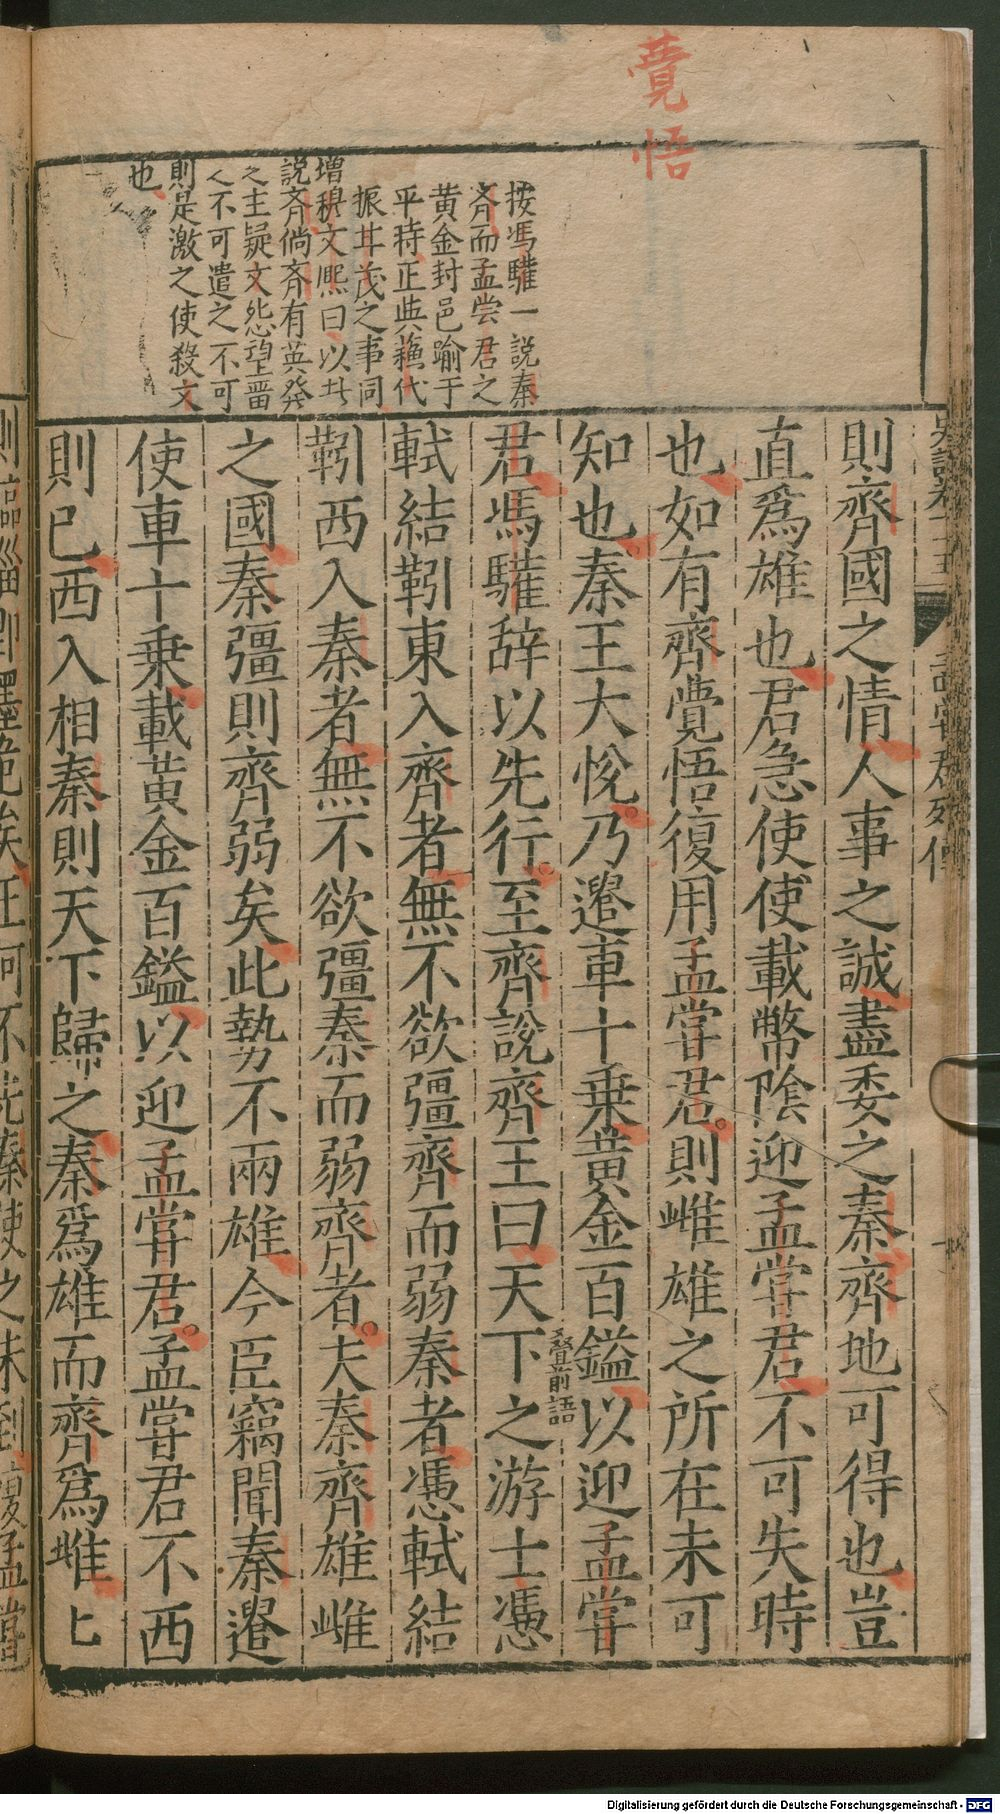 覺悟
按馮驩一說秦
齊而孟嘗君之
黃金封邑踰于
平時正與蘓代
振甘茂之事同
增穆文熈曰以此
說齊倘齊有英發
之主疑文怨望畱
之不可遣之不可
則是激之使殺文
也
則齊國之情人事之誠盡委之秦齊地可得也豈
直爲雄也君急使使載幣陰迎孟嘗君不可失時
也如有齊覺悟復用孟嘗君則雌雄之所在未可
知也秦王大悅乃遣車十乗黃金百鎰以迎孟嘗
疊前語
君馮驩辭以先行至齊說齊王曰天下之游士憑
軾結靷東入齊者無不欲彊齊而弱秦者憑軾結
靷西入秦者無不欲彊秦而弱齊者夫秦齊雄雌
之國秦彊則齊弱矣此勢不兩雄今臣竊聞秦遣
使車十乗載黃金百鎰以迎孟嘗君孟嘗君不西
則已西入相秦則天下歸之秦爲雄而齊爲雌匕
Digitalisierung gefördert durch die Deutsche Forschungsgemeinschaft - DFG